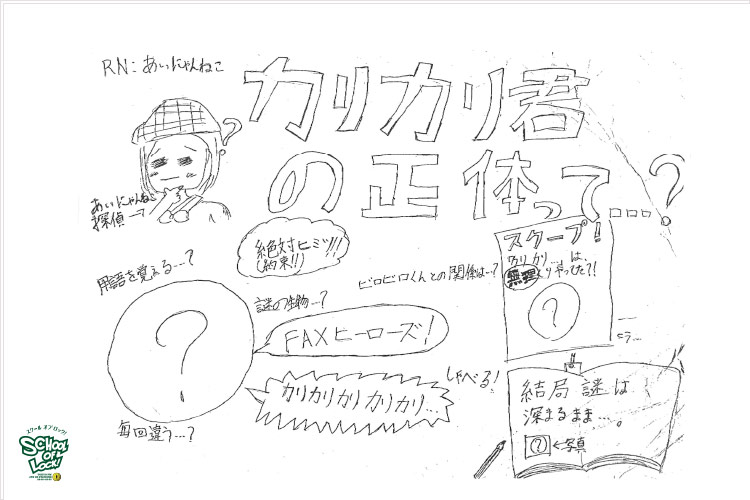 RN:あいにゃんねこ
カリカリ君
の正体って…?
?
あいにゃんねこ
探偵→
絶対ヒミツ!!!
(約束!!)
スクープ!
カリカリ…は、
無理くりやってた?!
?
用語を覚える…?
謎の生物…?
ビロビロくんとの関係は…?
?
FAXヒーローズ!
カリカリカリカリカリ…
しゃべる!
毎回違う…?
結局謎は
深まるまま…。
?←写真
スクール オブ ロック!
SCHOOL
OF
LOCK!